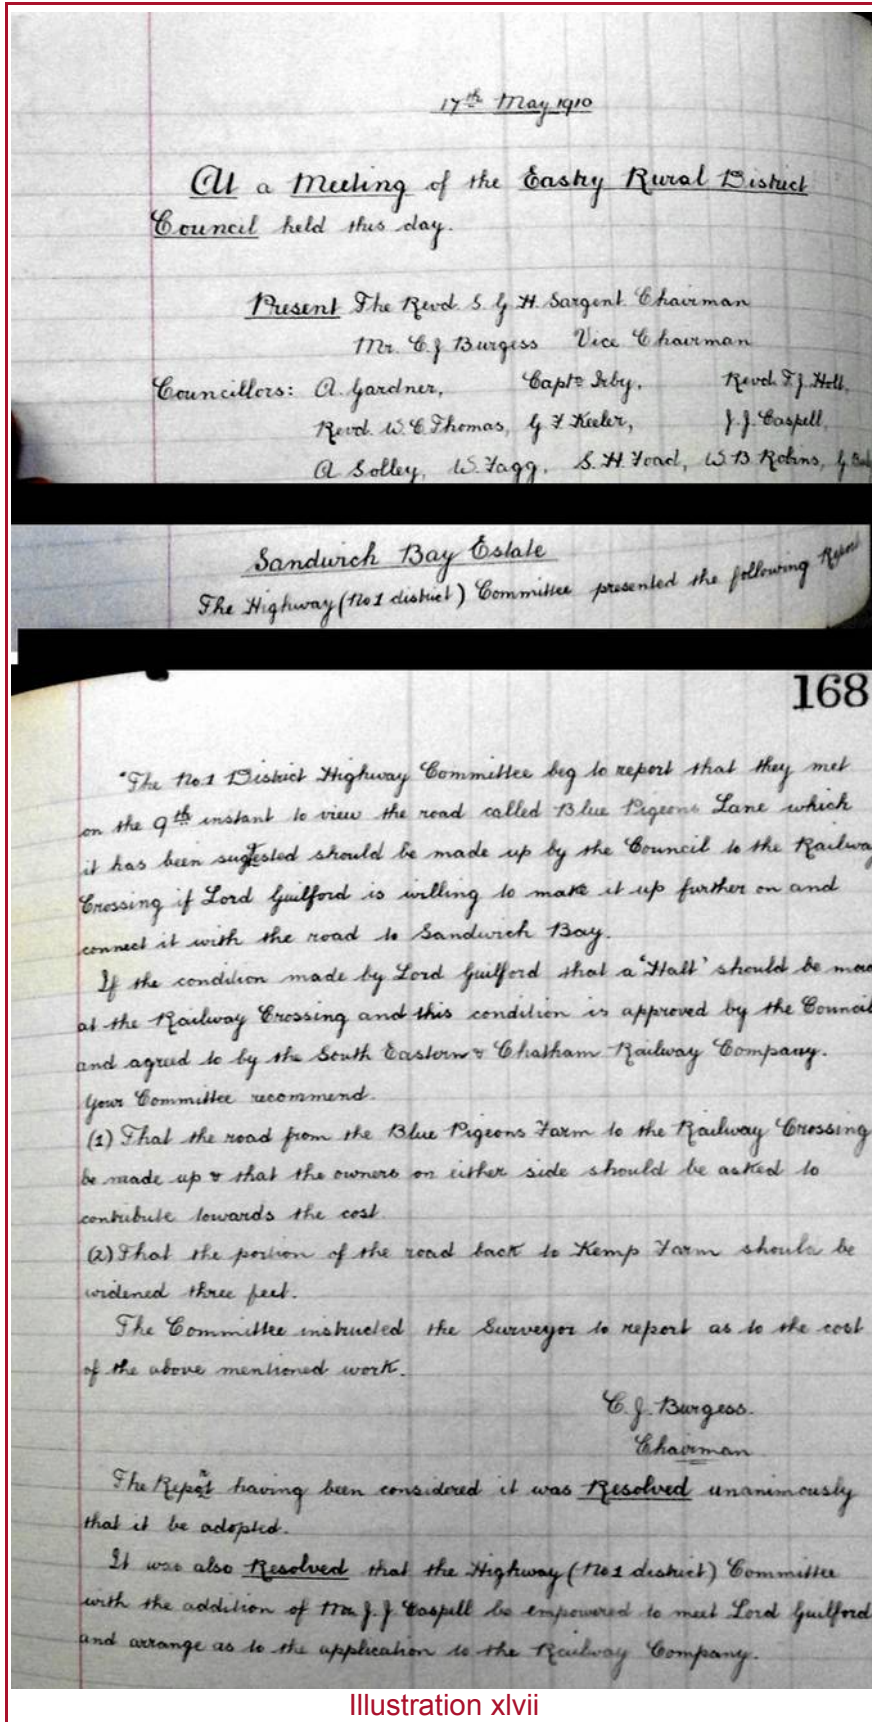 17th May 1910
At a Meeting of the Eastry Rural District
Council held this day.
Present The Revd. S. G. H. Sargent Chairman
Mr. C. J. Burgess Vice Chairman
Councillors: A. Gardner, Captn Irby, Revd. F. J. Holt,
Revd. W. C. Thomas, G F Keeler, J. J. Caspell,
A Solley, W. Fagg, S. H. Foad, W. B Robins, G.
Sandwich Bay Estate
The Highway (No 1 district) Committee presented the following Report
168
"The No. 1 District Highway Committee beg to report that they met
on the 9th instant to view the road called Blue Pigeons Lane which
it has been suggested should be made up by the Council to the Railway
Crossing if Lord Guilford is willing to make it up further on and
connect it with the road to Sandwich Bay.
If the condition made by Lord Guilford that a "Halt" should be made
at the Railway Crossing and this condition is approved by the Council
and agreed to by the South Eastern & Chatham Railway Company.
Your Committee recommend.
(1) That the road from the Blue Pigeons Farm to the Railway Crossing
be made up & that the owners on either side should be asked to
contribute towards the cost.
(2) That the portion of the road back to Kemp Farm should be
widened three feet.
The Committee instructed the Surveyor to report as to the cost
of the above mentioned work.
C. J. Burgess.
Chairman
The Report having been considered it was Resolved unanimously
that it be adopted.
It was also Resolved that the Highway (No 1 district) Committee
with the addition of Mr J. J. Caspell be empowered to meet Lord Guilford
and arrange as to the application to the Railway Company.
Illustration xlvii